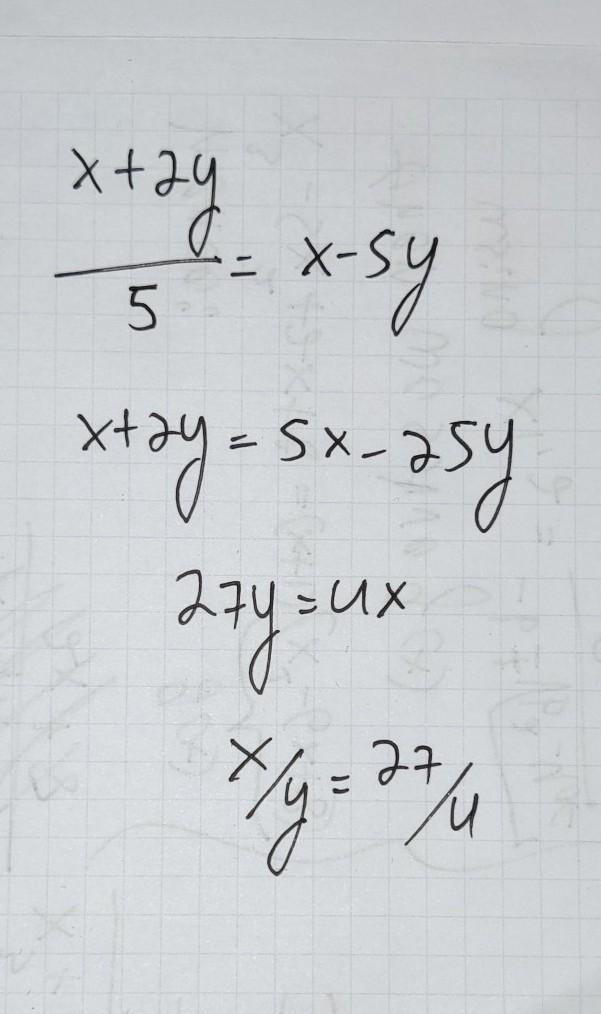 x+2y/5 = x-5y
x+2y = 5x-25y
27y = 4x
x/y = 27/4